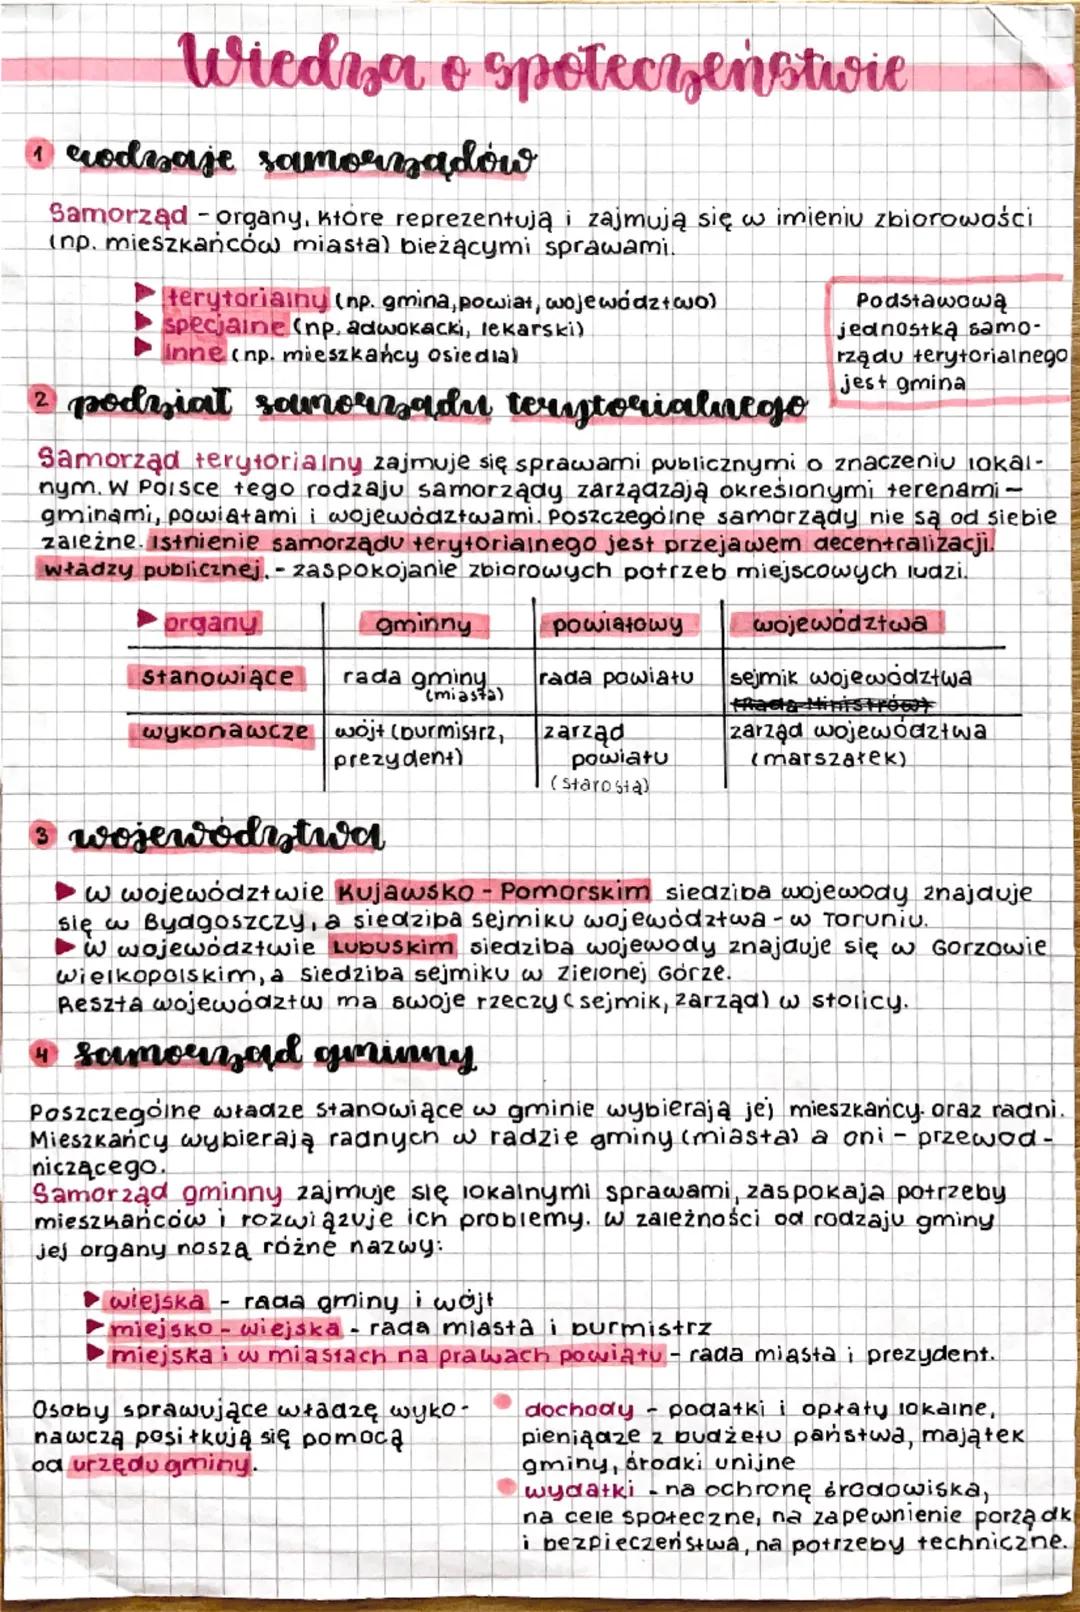 Wiedza o społeczeństwie
1 rodzaje samorządów
Samorząd - organy, które reprezentują i zajmują się w imieniu zbiorowości
(np. mieszkańców miasta) bieżącymi sprawami.
terytorialny (np. gmina, powiat, województwo)
specjalne (np. adwokacki, lekarski)
inne (np. mieszkańcy osiedla)
Podstawową
jednostką samo-
rządu terytorialnego
jest gmina
2 podział samorządu terytorialnego
Samorząd terytorialny zajmuje się sprawami publicznymi o znaczeniu lokal-
nym. W Polsce tego rodzaju samorządy zarządzają określonymi terenami -
gminami, powiatami i województwami. Poszczególne samorządy nie są od siebie
zależne. Istnienie samorządu terytorialnego jest przejawem decentralizacji
władzy publicznej. - zaspokojanie zbiorowych potrzeb miejscowych ludzi.
organy gminny powiatowy województwa
stanowiące rada gminy (miasta) rada powiatu sejmik województwa
(Rada Ministrów)
wykonawcze wójt (burmistrz, zarząd zarząd województwa
prezydent) powiatu (marszałek)
(starosta)
3 województwa
w województwie Kujawsko - Pomorskim siedziba wojewody znajduje
się w Bydgoszczy, a siedziba sejmiku województwa - w Toruniu.
W województwie Lubuskim siedziba wojewody znajduje się w Gorzowie
Wielkopolskim, a siedziba sejmiku w Zielonej Górze.
Reszta województw ma swoje rzeczy (sejmik, zarząd) w stolicy.
4 samorząd gminny
Poszczególne władze stanowiące w gminie wybierają jej mieszkańcy. oraz radni.
Mieszkańcy wybierają radnych w radzie gminy (miasta) a oni - przewod-
niczącego.
Samorząd gminny zajmuje się lokalnymi sprawami, zaspokaja potrzeby
mieszkańców i rozwiązuje ich problemy. W zależności od rodzaju gminy
jej organy noszą różne nazwy:
wiejska - rada gminy i wójt
miejsko - wiejska - rada miasta i burmistrz
miejska i w miastach na prawach powiatu - rada miasta i prezydent.
Osoby sprawujące władzę wyko-
nawczą posiłkują się pomocą
od urzędu gminy.
dochody - podatki i opłaty lokalne,
pieniądze z budżetu państwa, majątek
gminy, środki unijne
wydatki - na ochronę środowiska,
na cele społeczne, na zapewnienie porządk
i bezpieczeństwa, na potrzeby techniczne.